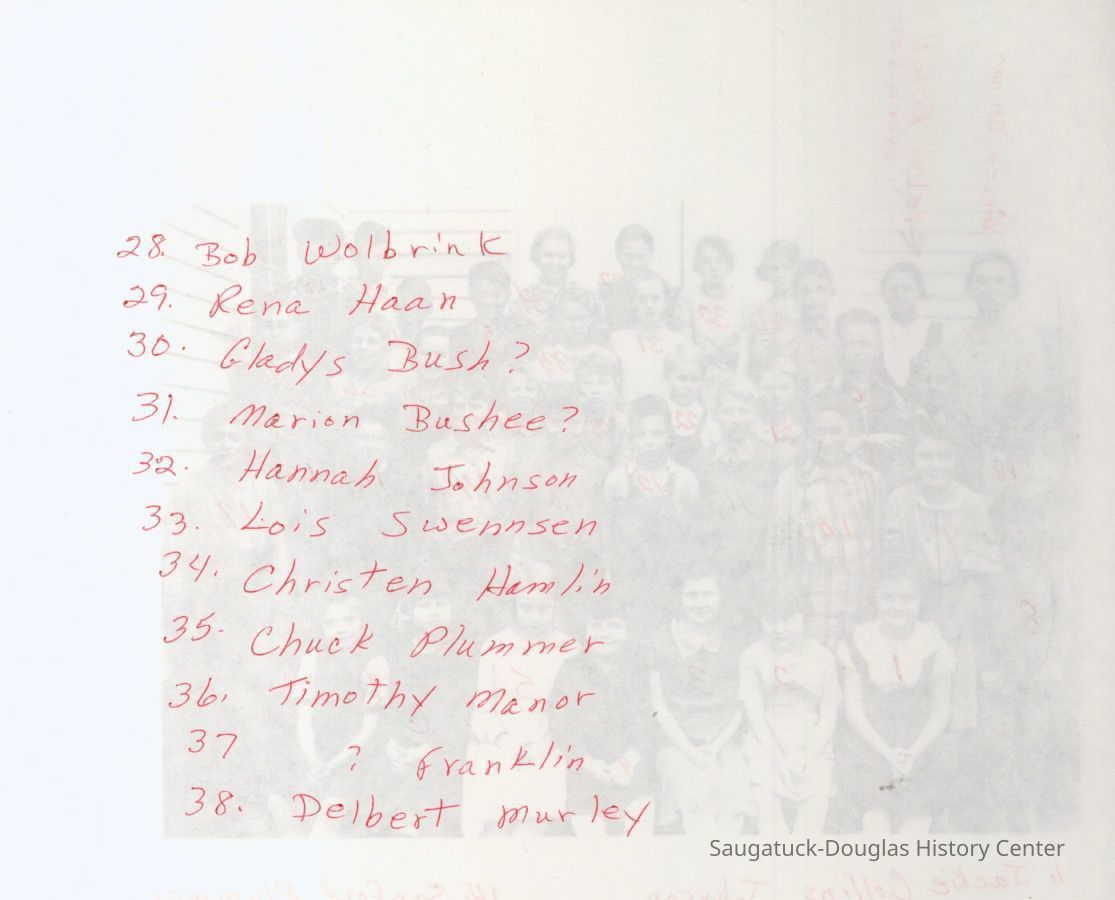 28. Bob Wolbrink
29. Rena Haan
30. Gladys Bush?
31. Marion Bushee?
32. Hannah Johnson
33. Lois Swennsen
34. Christen Hamlin
35. Chuck Plummer
36. Timothy Manor
37 ? Franklin
38. Delbert Murley
Saugatuck-Douglas History Center